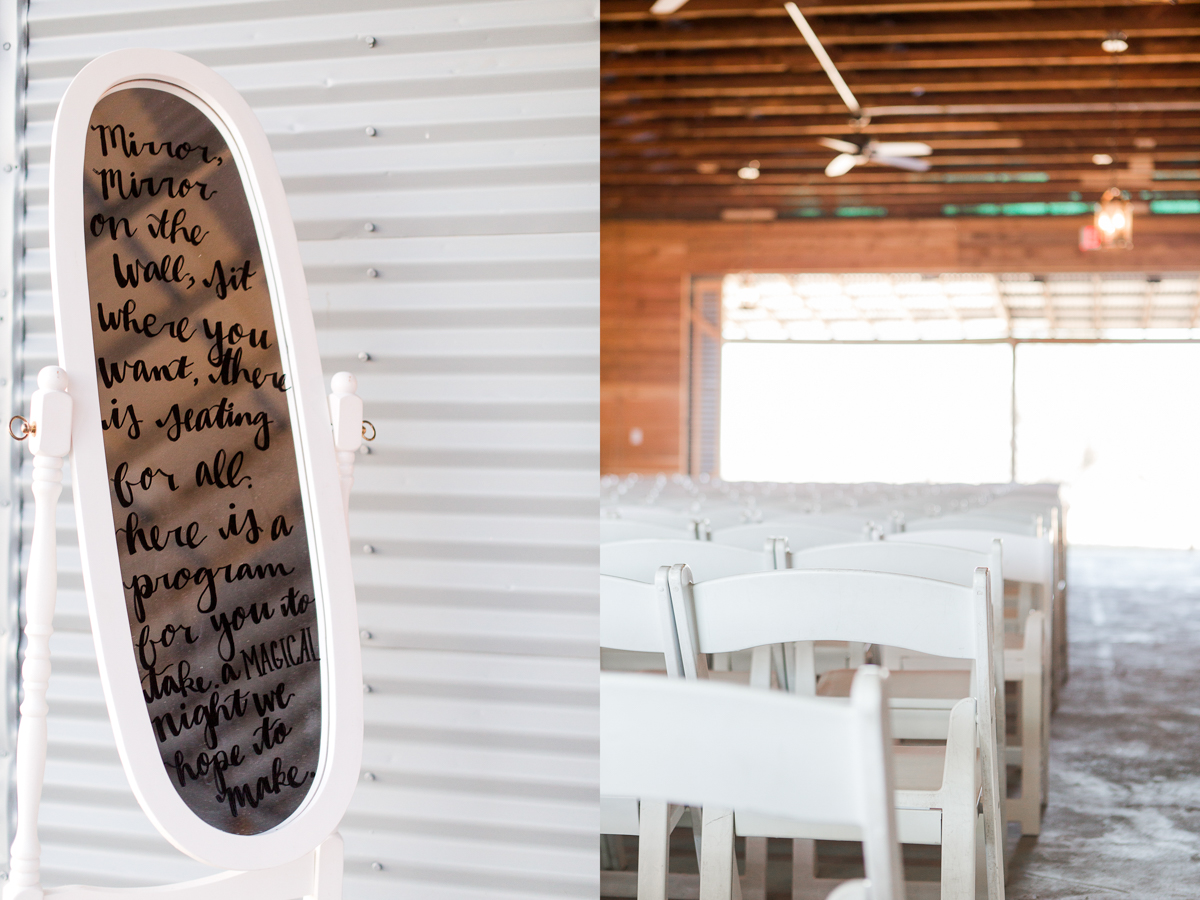 Mirror,
Mirror
on the
Wall, sit
where you
want, there
is seating
for all.
here is a
program
for you to
take. a MAGICAL
night we
hope to
make.